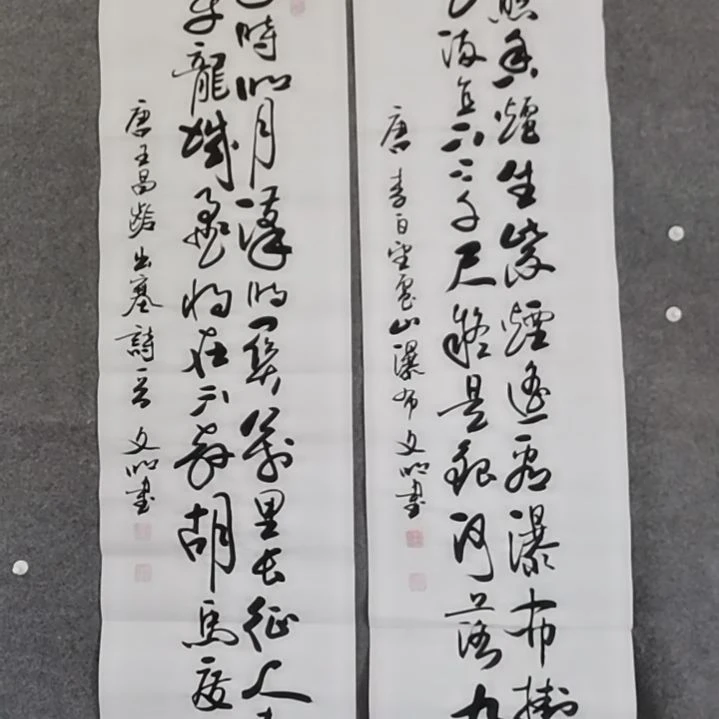 照香爐生紫煙遙看瀑布掛
流直下三千尺疑是銀河落九
唐李白望廬山瀑布 文明書
時明月漢時關萬里長征人
龍城飛將在不教胡馬度
唐王昌齡出塞詩一首 文明書